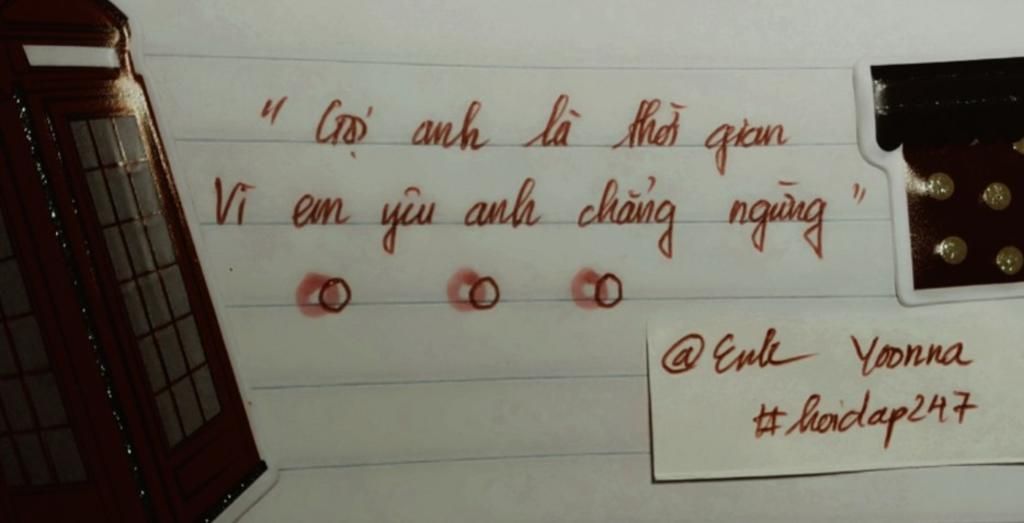 " Gọi anh là thời gian
Vì em yêu anh chẳng ngừng "
@Enle Yoonna
#hoidap247